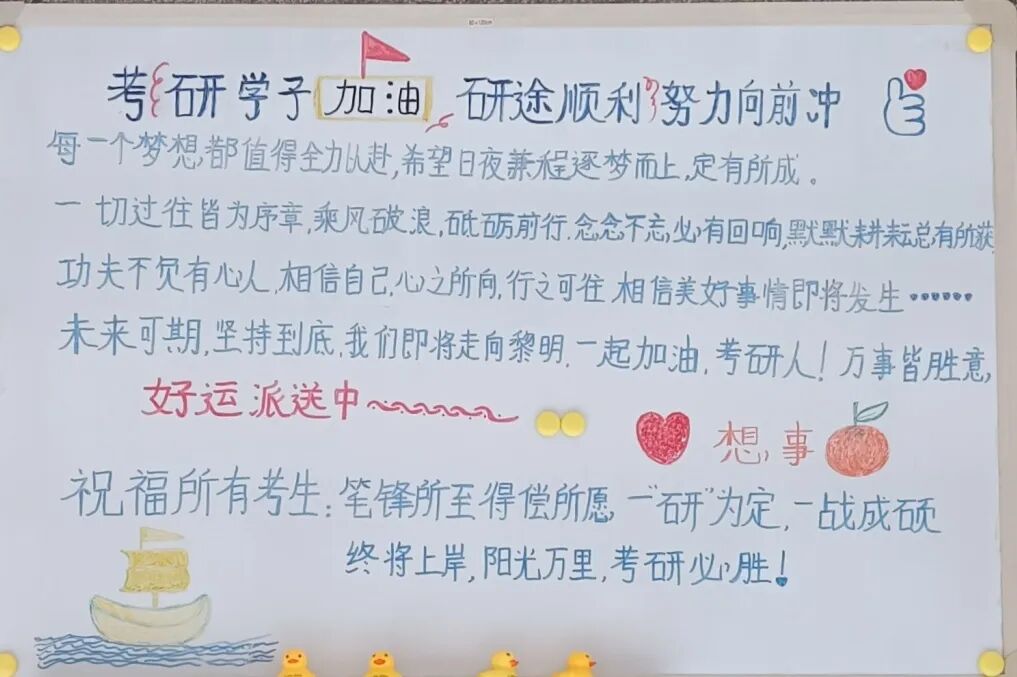 考研学子加油 研途顺利 努力向前冲
每一个梦想,都值得全力以赴,希望日夜兼程逐梦而上,定有所成。
一切过往皆为序章,乘风破浪,砥砺前行.念念不忘,必有回响,默默耕耘总有所获
功夫不负有心人,相信自己,心之所向,行之可往.相信美好事情即将发生……
未来可期,坚持到底,我们即将走向黎明.一起加油,考研人!万事皆胜意,
好运派送中~
想,事
祝福所有考生:笔锋所至得偿所愿,一"研"为定,一战成硕
终将上岸,阳光万里,考研必胜!